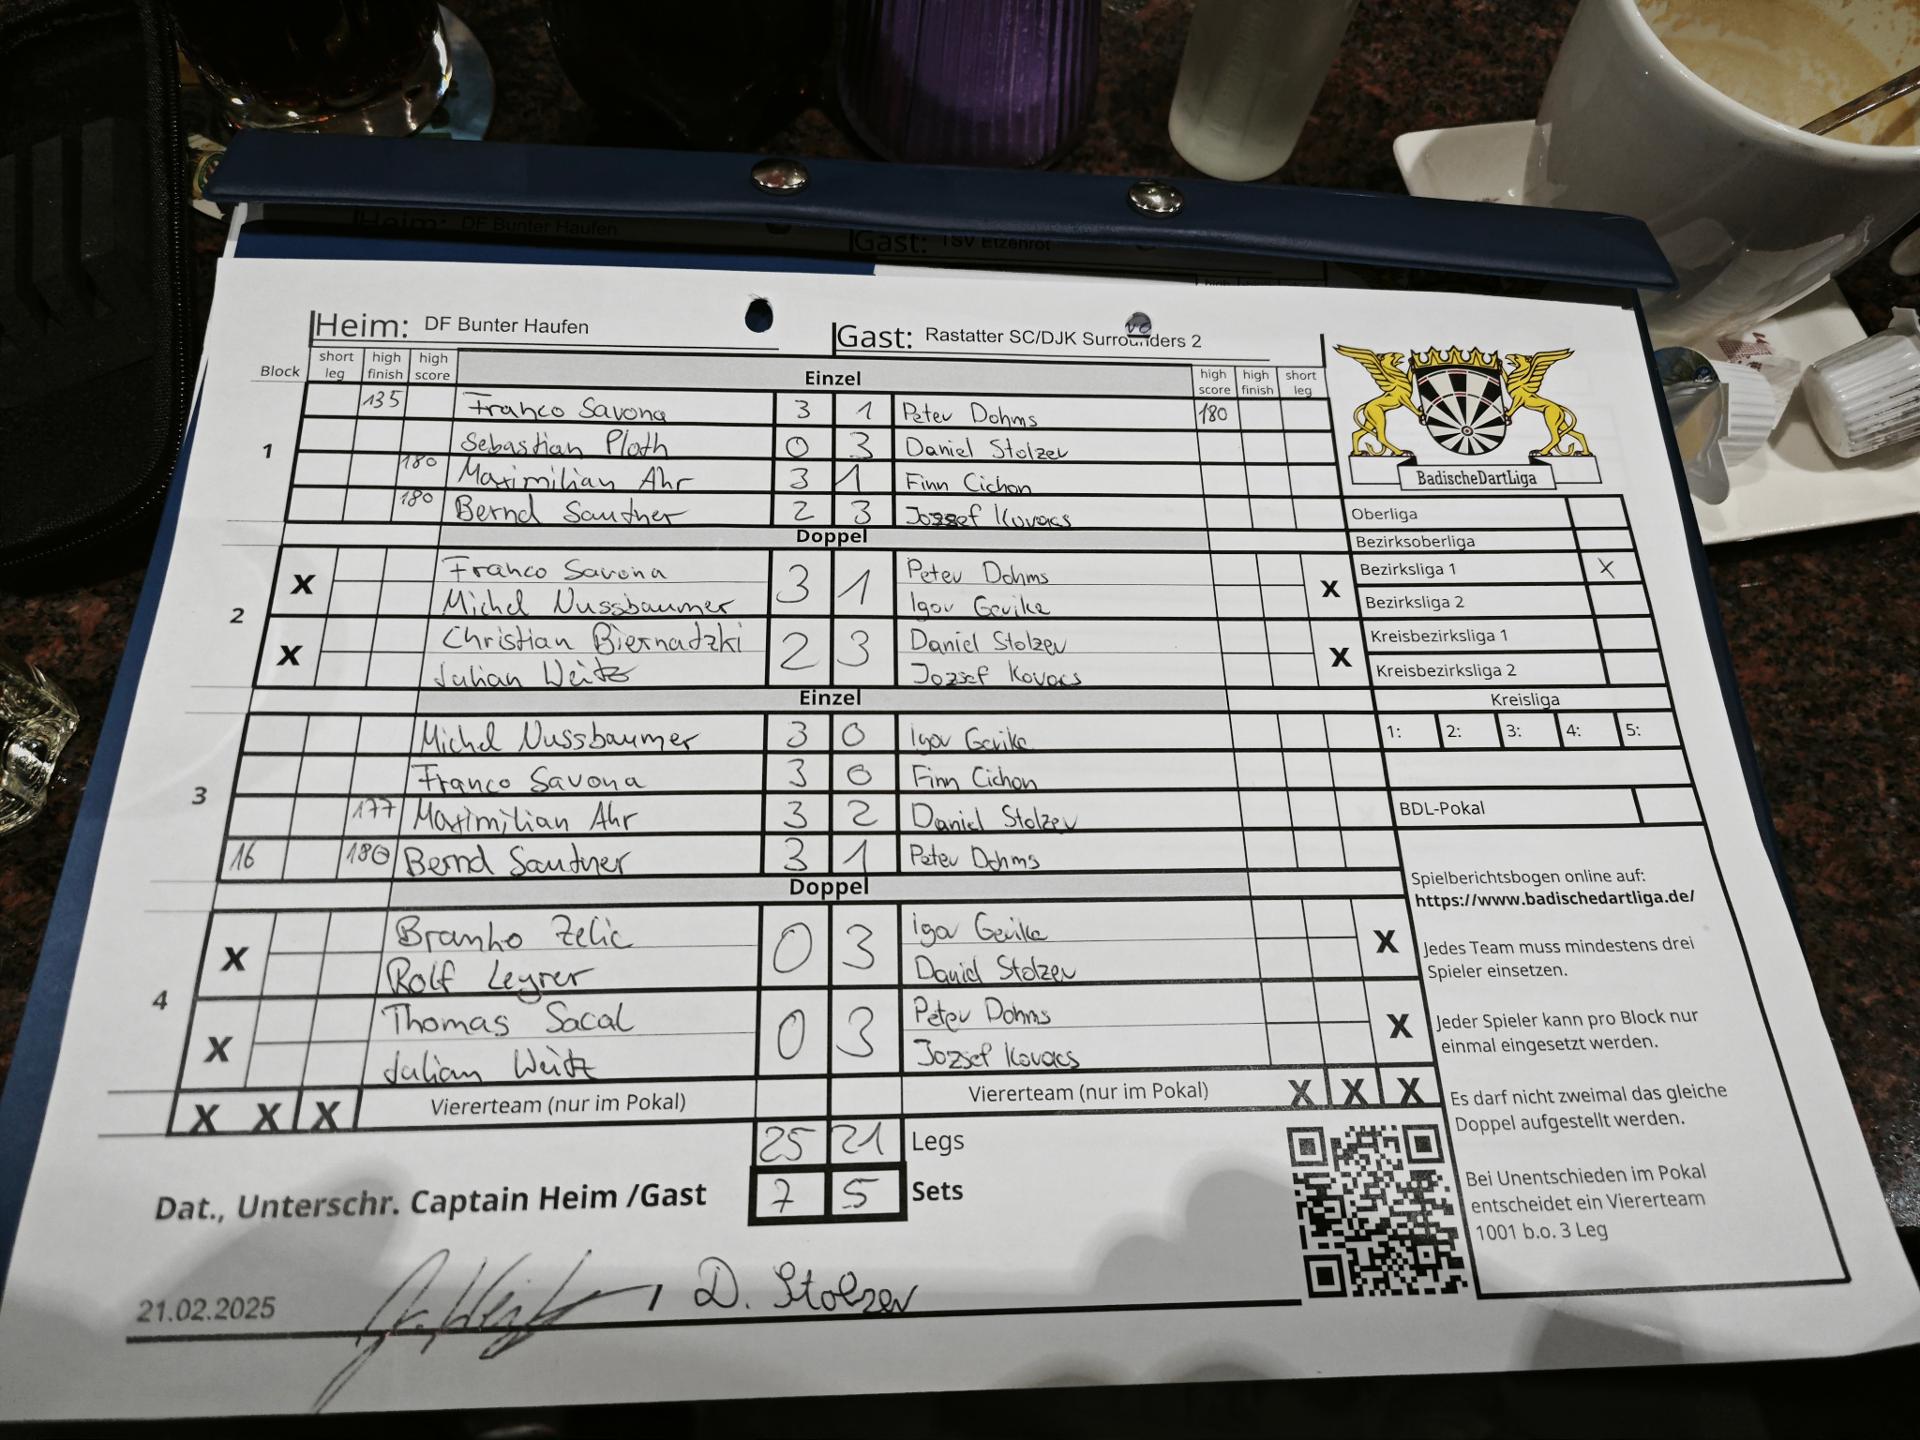 Heim: DF Bunter Haufen Gast: TSV Etzenrot
Heim: DF Bunter Haufen Gast: Rastatter SC/DJK Surrounders 2
Block short leg high finish high score Einzel high score high finish short leg
1
135 Franco Savona 3 1 Peter Dohms 180
Sebastian Ploth 0 3 Daniel Stolzer
180 Maximilian Ahr 3 1 Finn Cichon
180 Bernd Sautner 2 3 Jozsef Kovacs
Doppel
2
X Franco Savona 3 1 Peter Dohms X
Michel Nussbaumer Igor Gerike
X Christian Biernatzki 2 3 Daniel Stolzer X
Julian Weitz Jozsef Kovacs
Einzel
3
Michel Nussbaumer 3 0 Igor Gerike
Franco Savona 3 0 Finn Cichon
177 Maximilian Ahr 3 2 Daniel Stolzer
16 180 Bernd Sautner 3 1 Peter Dohms
Doppel
4
X Branko Zelic 0 3 Igor Gerike X
Rolf Leyrer Daniel Stolzer
X Thomas Sacal 0 3 Peter Dohms X
Julian Weitz Jozsef Kovacs
X X X Viererteam (nur im Pokal) Viererteam (nur im Pokal) X X X
25 21 Legs
Dat., Unterschr. Captain Heim /Gast 7 5 Sets
21.02.2025 / D. Stolzer
BadischeDartLiga
Oberliga
Bezirksoberliga
Bezirksliga 1 X
Bezirksliga 2
Kreisbezirksliga 1
Kreisbezirksliga 2
Kreisliga
1: 2: 3: 4: 5:
BDL-Pokal
Spielberichtsbogen online auf:
https://www.badischedartliga.de/
Jedes Team muss mindestens drei
Spieler einsetzen.
Jeder Spieler kann pro Block nur
einmal eingesetzt werden.
Es darf nicht zweimal das gleiche
Doppel aufgestellt werden.
Bei Unentschieden im Pokal
entscheidet ein Viererteam
1001 b.o. 3 Leg